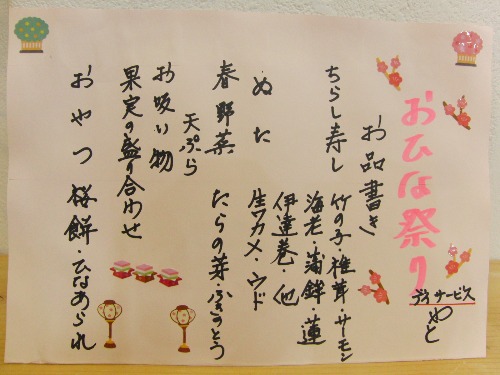 おひな祭り
デイサービス
やと
お品書き
ちらし寿し 竹の子・椎茸・サーモン
海老・蒲鉾・蓮
伊達巻・他
ぬた 生ワカメ・ウド
春野菜
天ぷら たらの芽・ふきのとう
お吸い物
果実の盛り合わせ
おやつ 桜餅・ひなあられ